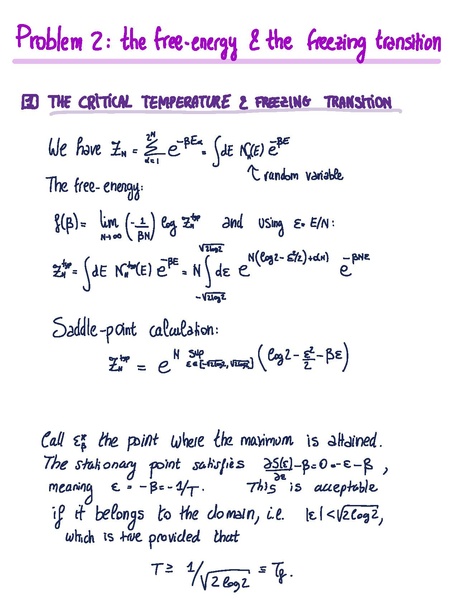 Problem 2: the free-energy & the freezing transition
2.1 THE CRITICAL TEMPERATURE & FREEZING TRANSITION
We have Z_N = Σ_{α=1}^{2^N} e^{-βE_α} = ∫dE N_N(E) e^{-βE}
↑ random variable
The free-energy:
f(β) = lim_{N→∞} (-1/βN) log Z_N^{typ} and using ε = E/N:
Z_N^{typ} = ∫dE N_N^{typ}(E) e^{-βE} = N ∫_{-√2log2}^{√2log2} dε e^{N(log2 - ε²/2)+o(N)} e^{-βNε}
Saddle-point calculation:
Z_N^{typ} = e^{N sup_{ε∈[-√2log2, √2log2]} (log2 - ε²/2 - βε)}
Call ε*_β the point where the maximum is attained.
The stationary point satisfies ∂S(ε)/∂ε - β = 0 = -ε - β ,
meaning ε = -β = -1/T. This is acceptable
if it belongs to the domain, i.e. |ε| < √2log2,
which is true provided that
T ≥ 1/√2log2 ≡ T_f.